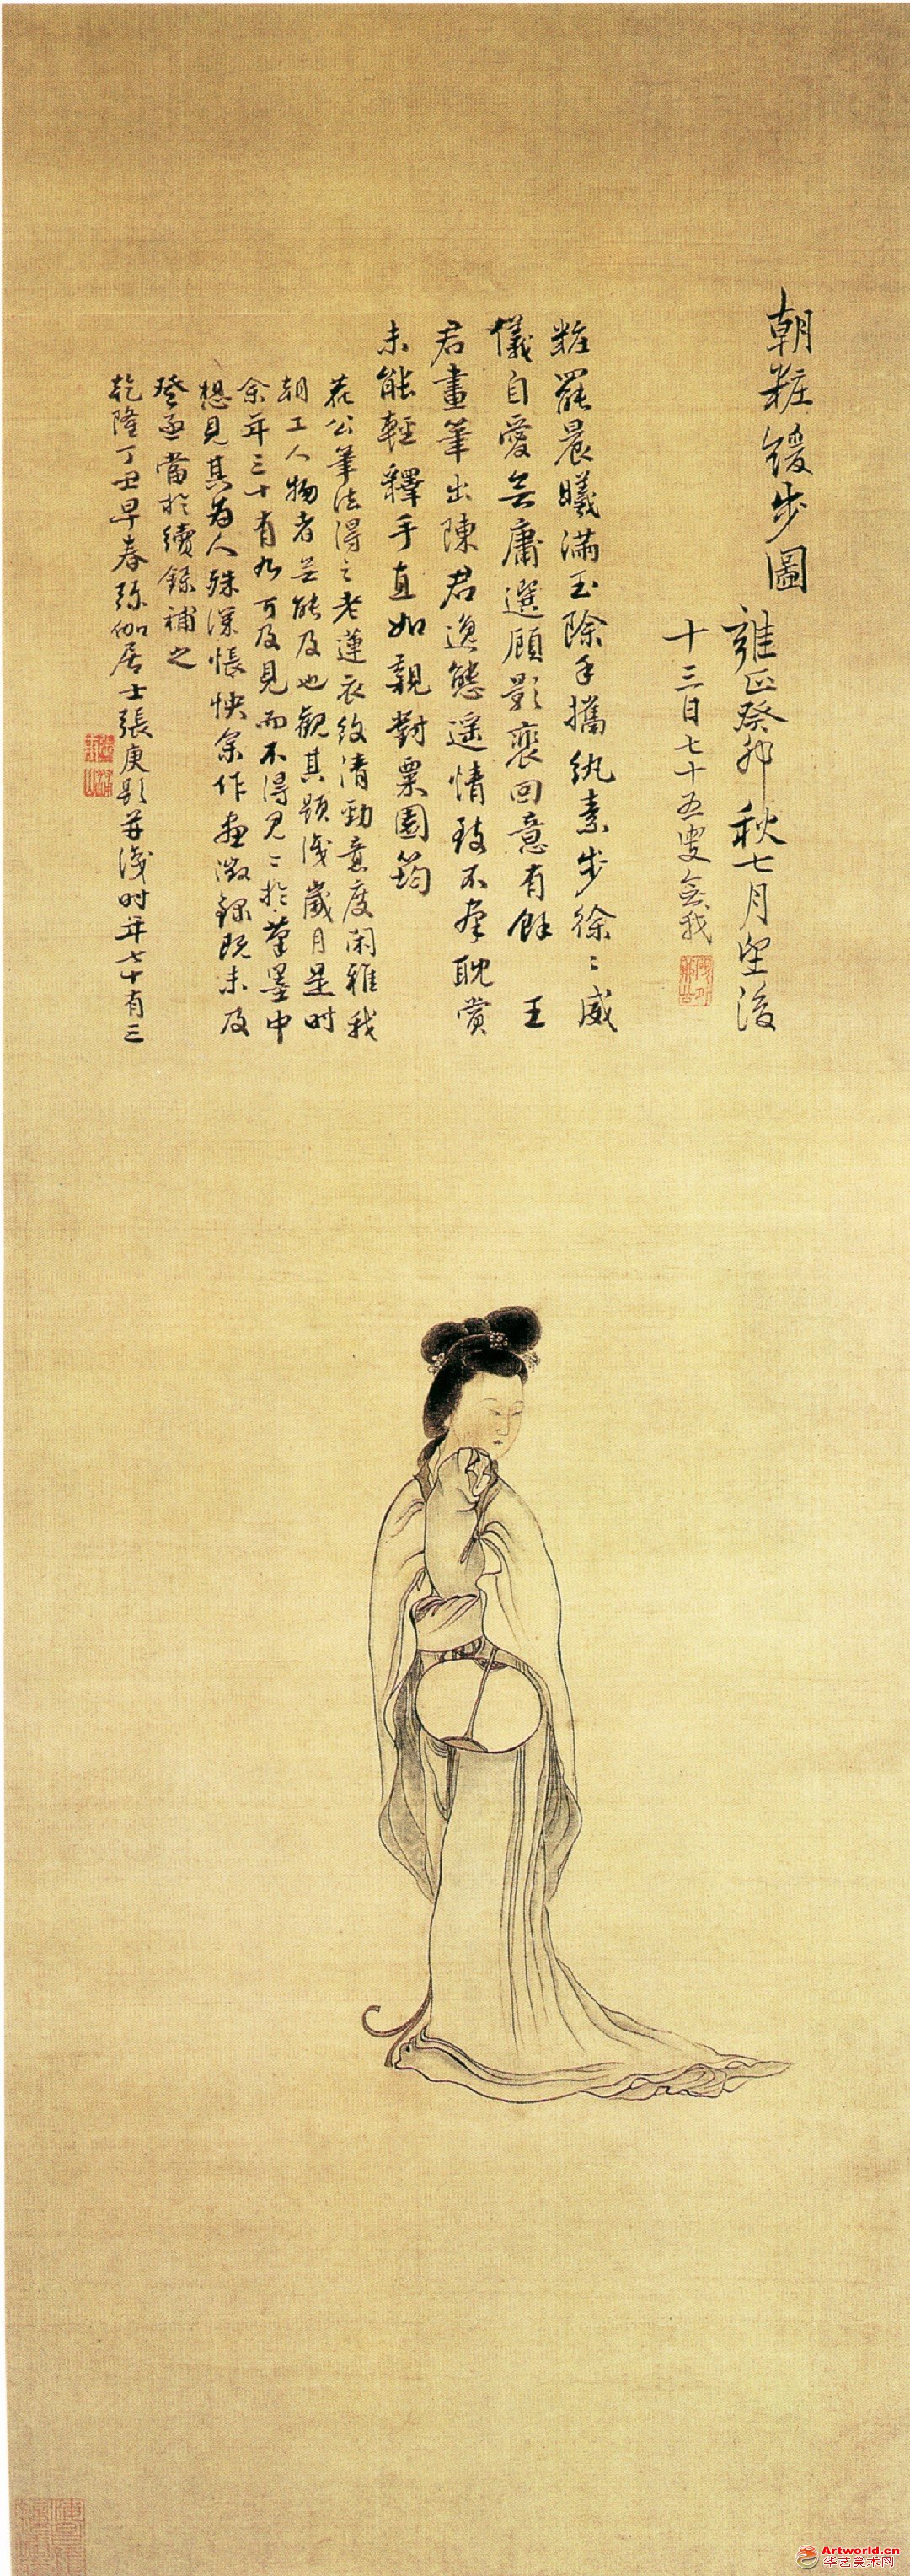 朝粧緩步圖
雍正癸卯秋七月望後
十三日七十五叟無我
粧罷晨曦滿玉除手攜紈素步徐〻威
儀自愛無庸選顧影裵回意有餘　王
君畫筆出陳君逸態遥情致不羣耽賞
未能輕釋手直如親對粟園筠
花公筆法得之老蓮衣紋清勁意度閑雅我
朝工人物者無能及也觀其題識歲月是時
余年三十有九可及見而不得見〻於筆墨中
想見其為人殊深悵怏余作畫徵錄既未及
登亟當於續錄補之
乾隆丁丑早春弥伽居士張庚題并識时年七十有三
Artworld.cn
华艺美术网